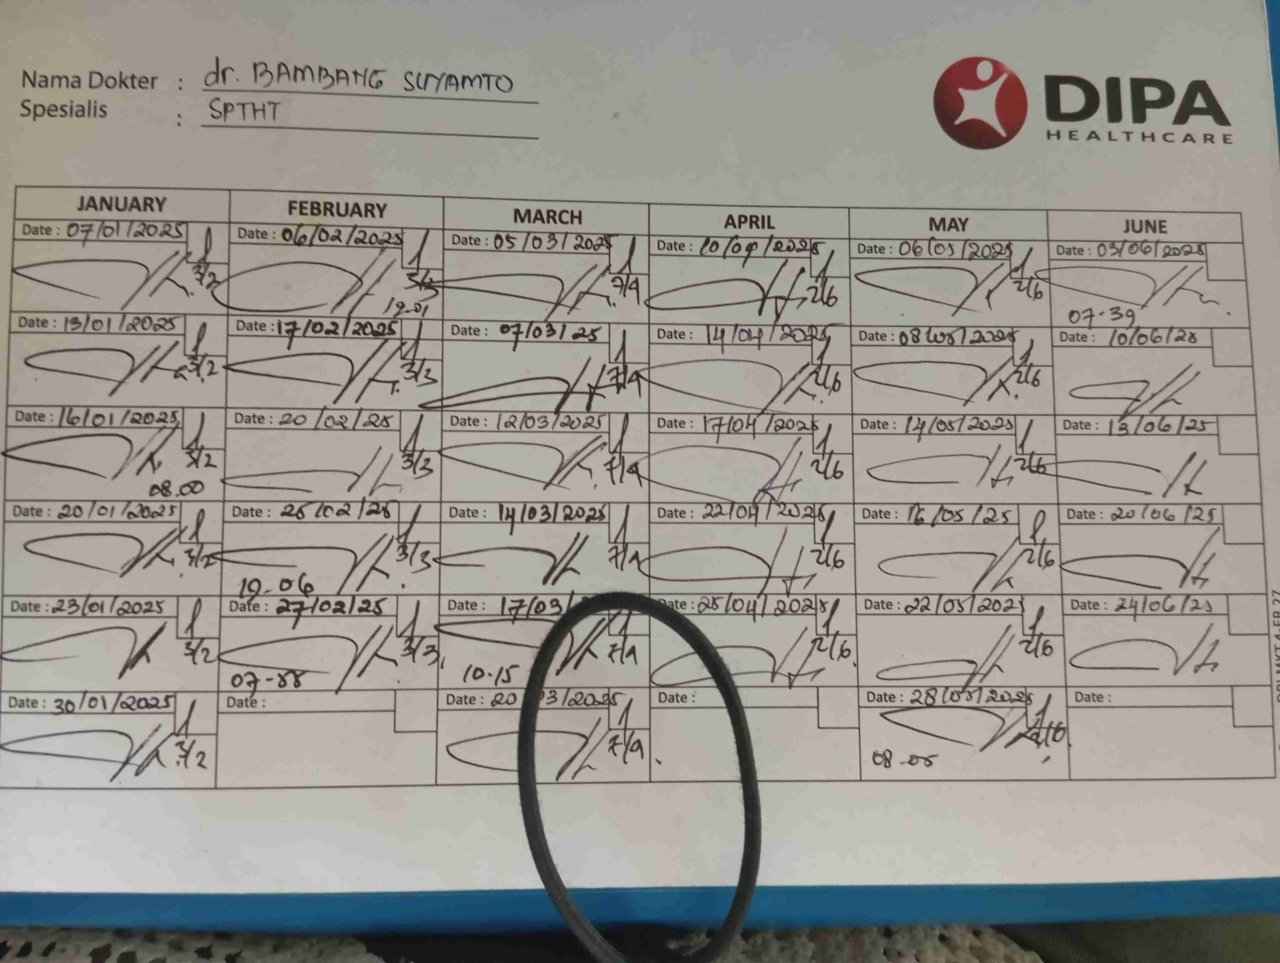 Nama Dokter : dr. BAMBANG SUYAMTO
Spesialis : SPTHT
DIPA
HEALTHCARE
JANUARY FEBRUARY MARCH APRIL MAY JUNE
Date : 07/01/2025 Date : 06/02/2025 Date : 05/03/2025 Date : 10/04/2025 Date : 06/05/2025 Date : 03/06/2025
3/2 3/3 7/4 2/6 2/6
19.01 07-39
Date : 13/01/2025 Date : 17/02/2025 Date : 07/03/25 Date : 14/04/2025 Date : 08/05/2025 Date : 10/06/25
3/2 3/3 7/4 2/6 2/6
Date : 16/01/2025 Date : 20/02/25 Date : 12/03/2025 Date : 17/04/2025 Date : 14/05/2025 Date : 13/06/25
3/2 3/3 7/4 2/6 2/6
08.00
Date : 20/01/2025 Date : 25/02/25 Date : 14/03/2025 Date : 22/04/2025 Date : 16/05/25 Date : 20/06/25
3/2 3/3 7/4 2/6 2/6
19.06
Date : 23/01/2025 Date : 27/02/25 Date : 17/03/ Date : 25/04/2025 Date : 22/05/2025 Date : 24/06/25
3/2 3/3 7/4 2/6 2/6
07-55 10.15
Date : 30/01/2025 Date : Date : 20/03/2025 Date : Date : 28/05/2025 Date :
3/2 7/4 2/6
08.05